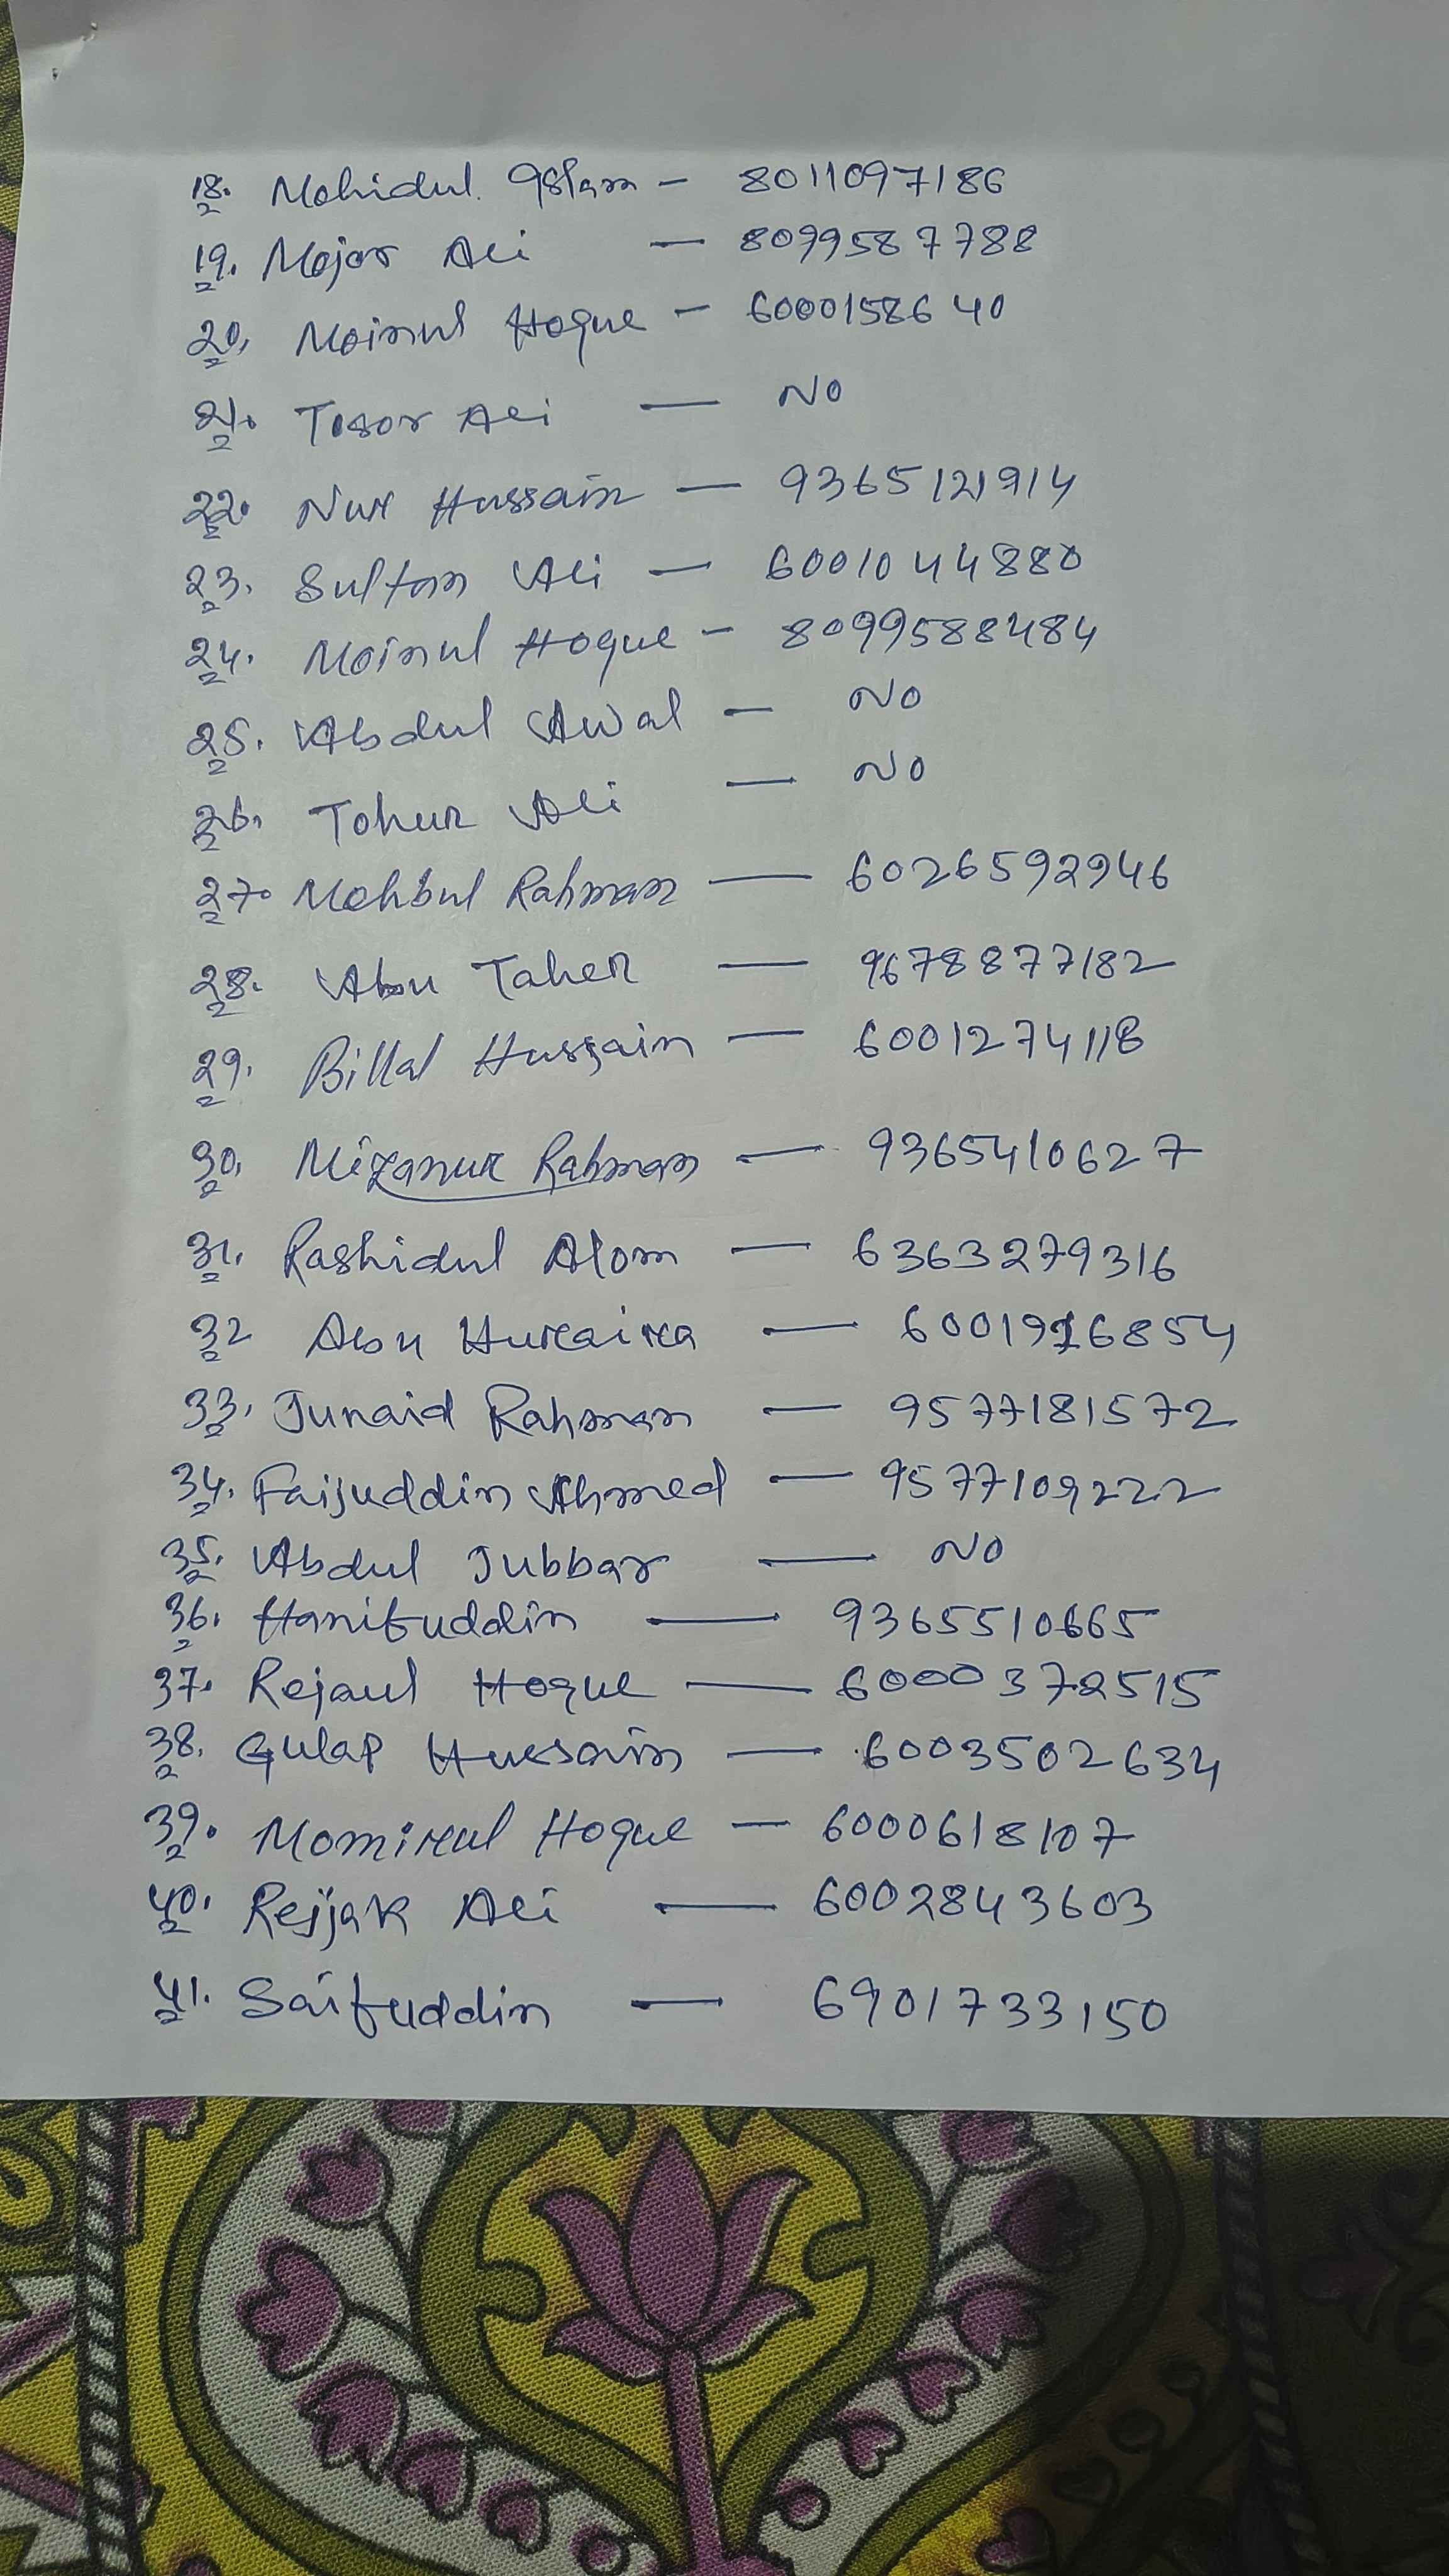 18. Mohidul Islam - 8011097186
19. Mojor Ali - 8099587788
20. Moinul Hoque - 6000158640
21. Tosor Ali - NO
22. Nur Hussain - 9365121914
23. Sultan Ali - 6001044880
24. Moinul Hoque - 8099588484
25. Abdul Awal - NO
26. Tohur Ali - NO
27. Mohbul Rahman - 6026592946
28. Abu Taher - 9678877182
29. Billal Hussain - 6001274118
30. Mizanur Rahman - 9365410627
31. Rashidul Alom - 6363279316
32 Abu Huraira - 6001916854
33. Junaid Rahman - 9577181572
34. Faijuddin Ahmed - 9577109222
35. Abdul Jubbar - NO
36. Hanifuddin - 9365510665
37. Rejaul Hoque - 6000372515
38. Gulap Hussain - 6003502634
39. Mominul Hoque - 6000618107
40. Rejjak Ali - 6002843603
41. Saifuddin - 6901733150